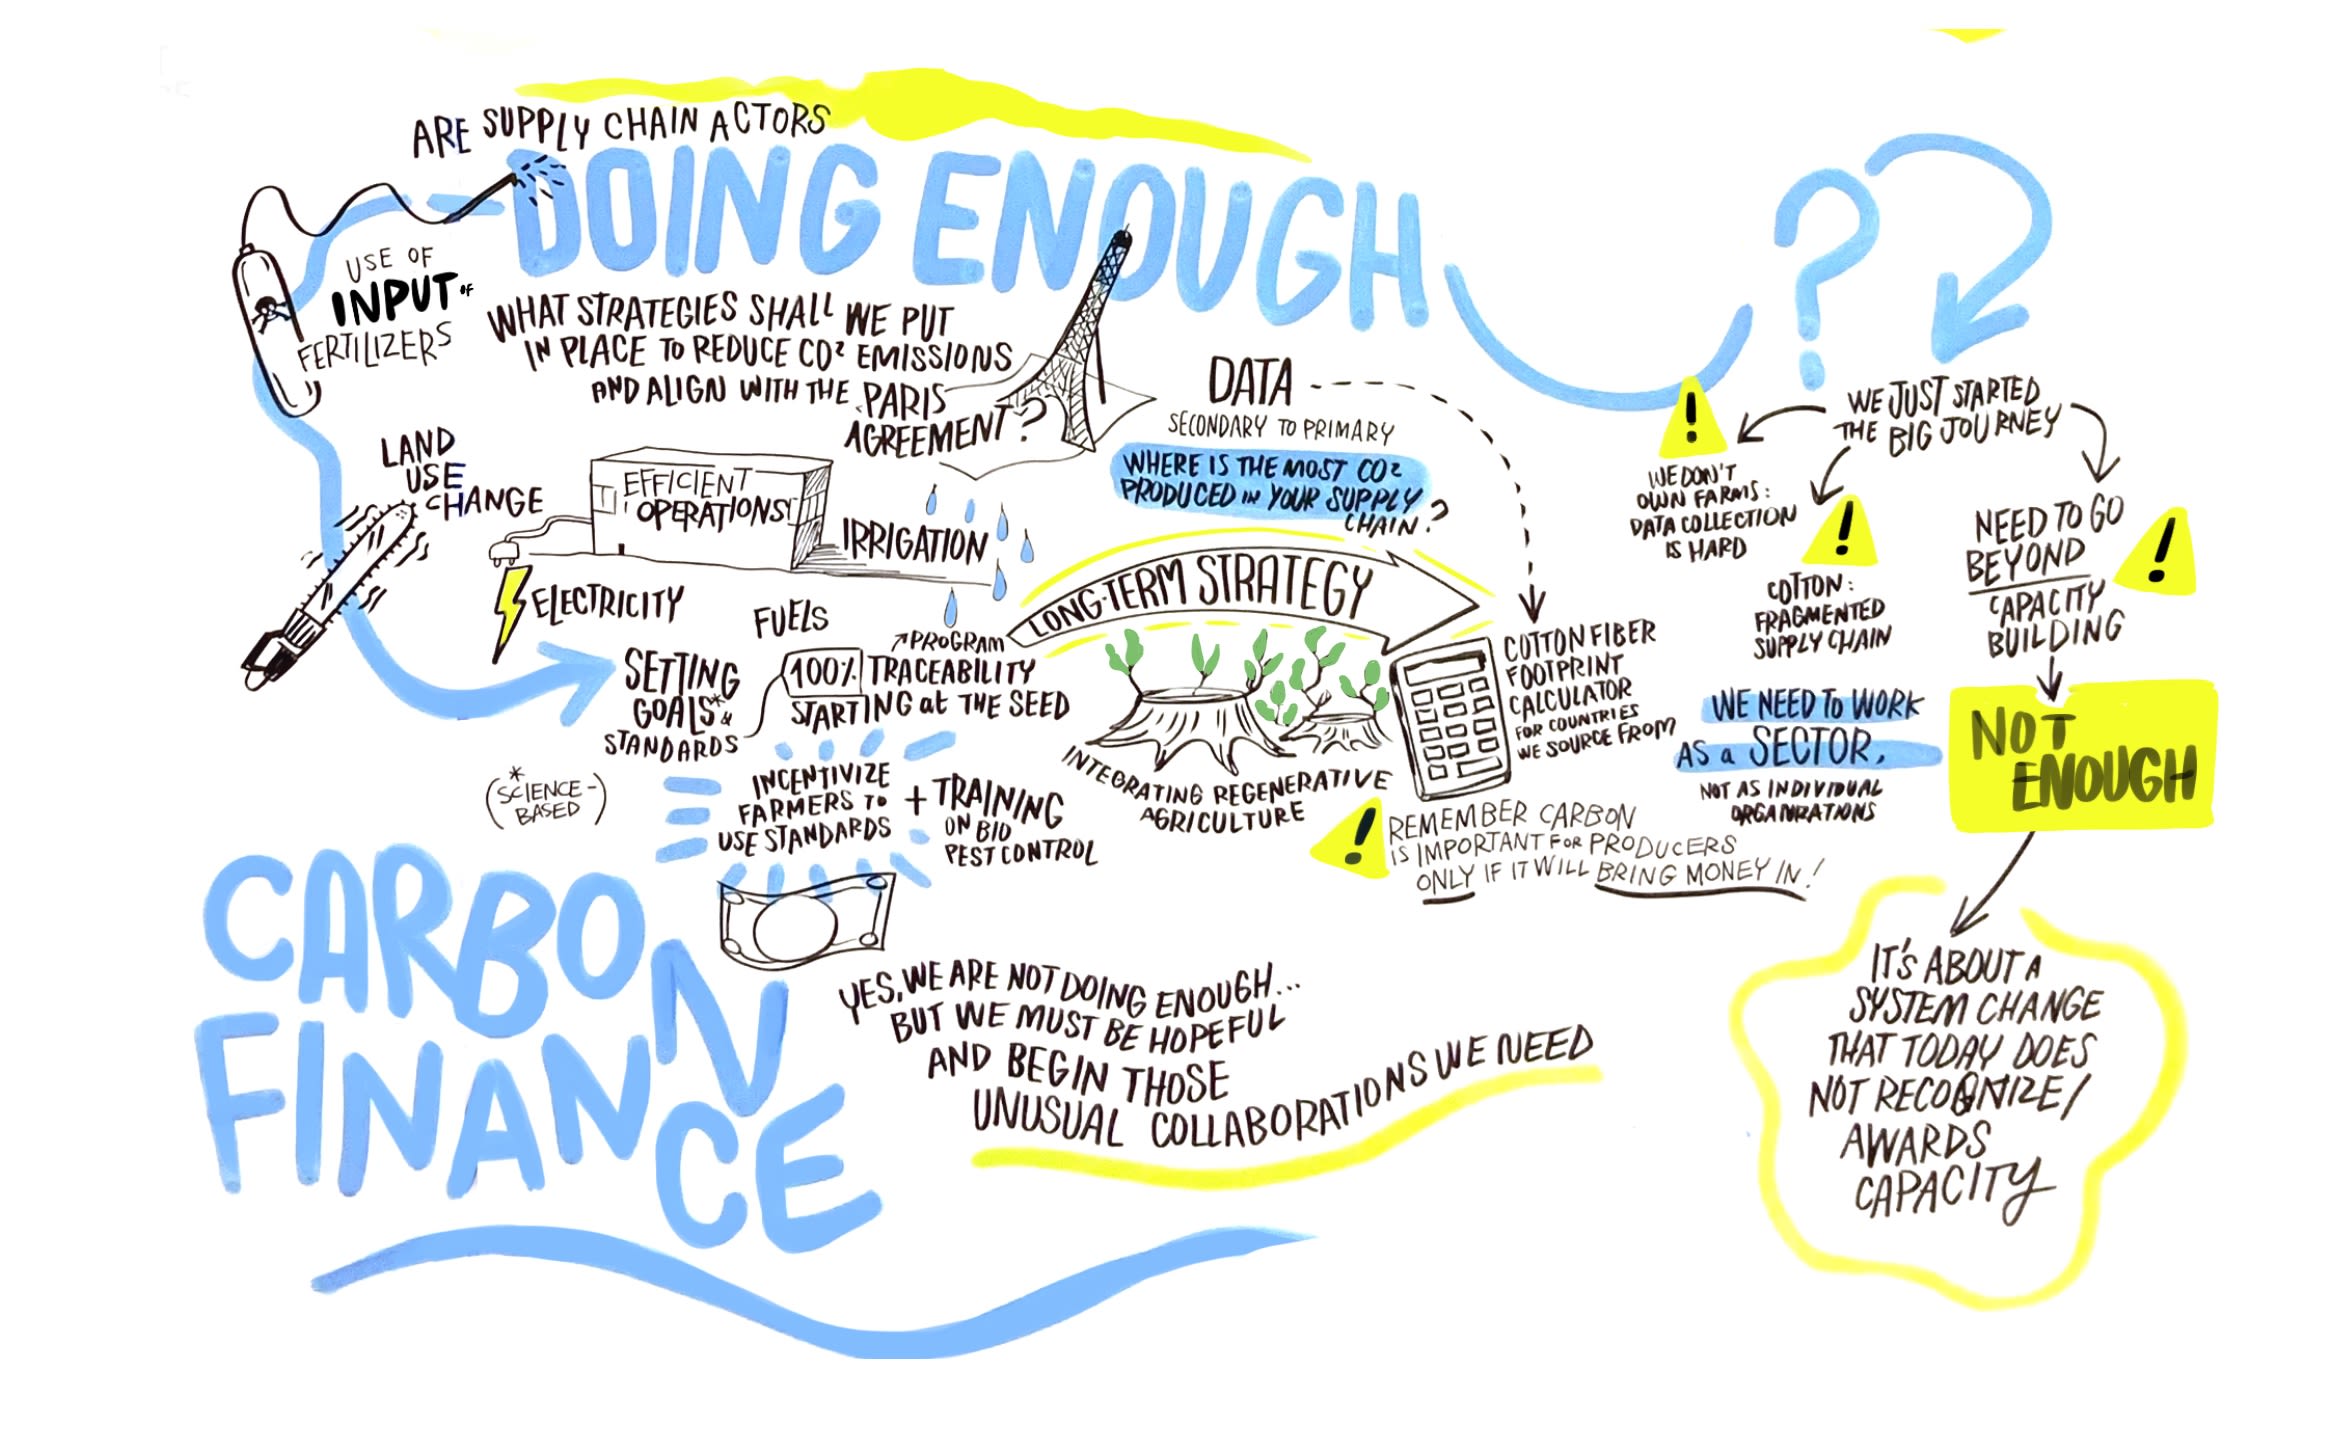 ARE SUPPLY CHAIN ACTORS
DOING ENOUGH ?
USE OF
INPUT OF
FERTILIZERS
WHAT STRATEGIES SHALL WE PUT
IN PLACE TO REDUCE CO² EMISSIONS
AND ALIGN WITH THE PARIS
AGREEMENT?
LAND
USE
CHANGE
EFFICIENT
OPERATIONS
IRRIGATION
ELECTRICITY
FUELS
DATA
SECONDARY TO PRIMARY
WHERE IS THE MOST CO²
PRODUCED IN YOUR SUPPLY
CHAIN?
LONG-TERM STRATEGY
SETTING
GOALS* &
STANDARDS
(*SCIENCE-
BASED)
PROGRAM
100% TRACEABILITY
STARTING at THE SEED
INCENTIVIZE
FARMERS TO
USE STANDARDS
+ TRAINING
ON BIO
PEST CONTROL
INTEGRATING REGENERATIVE
AGRICULTURE
COTTON FIBER
FOOTPRINT
CALCULATOR
FOR COUNTRIES
WE SOURCE FROM
! REMEMBER CARBON
IS IMPORTANT FOR PRODUCERS
ONLY IF IT WILL BRING MONEY IN!
WE JUST STARTED
THE BIG JOURNEY
!
WE DON'T
OWN FARMS:
DATA COLLECTION
IS HARD
!
COTTON:
FRAGMENTED
SUPPLY CHAIN
WE NEED TO WORK
AS a SECTOR,
NOT AS INDIVIDUAL
ORGANIZATIONS
NEED TO GO
BEYOND !
CAPACITY
BUILDING
NOT
ENOUGH
IT'S ABOUT A
SYSTEM CHANGE
THAT TODAY DOES
NOT RECOGNIZE/
AWARDS
CAPACITY
CARBON
FINANCE
YES, WE ARE NOT DOING ENOUGH...
BUT WE MUST BE HOPEFUL
AND BEGIN THOSE
UNUSUAL COLLABORATIONS WE NEED